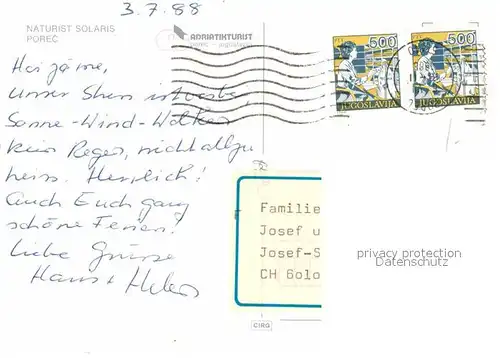 3.7.88
NATURIST SOLARIS
POREČ
ADRIATIKTURIST
poreč - jugoslavija
PTT 500
JUGOSLAVIJA
PTT 500
JUGOSLAVIJA
unser Stress ist vorbei,
Sonne - Wind - Wolken
kein Regen, nicht allzu
heiss. Herrlich!
Auch Euch ganz
schöne Ferien!
Liebe Grüsse
Hans +
Familie
Josef u
Josef-S
CH 6010
privacy protection
Datenschutz
CIRG